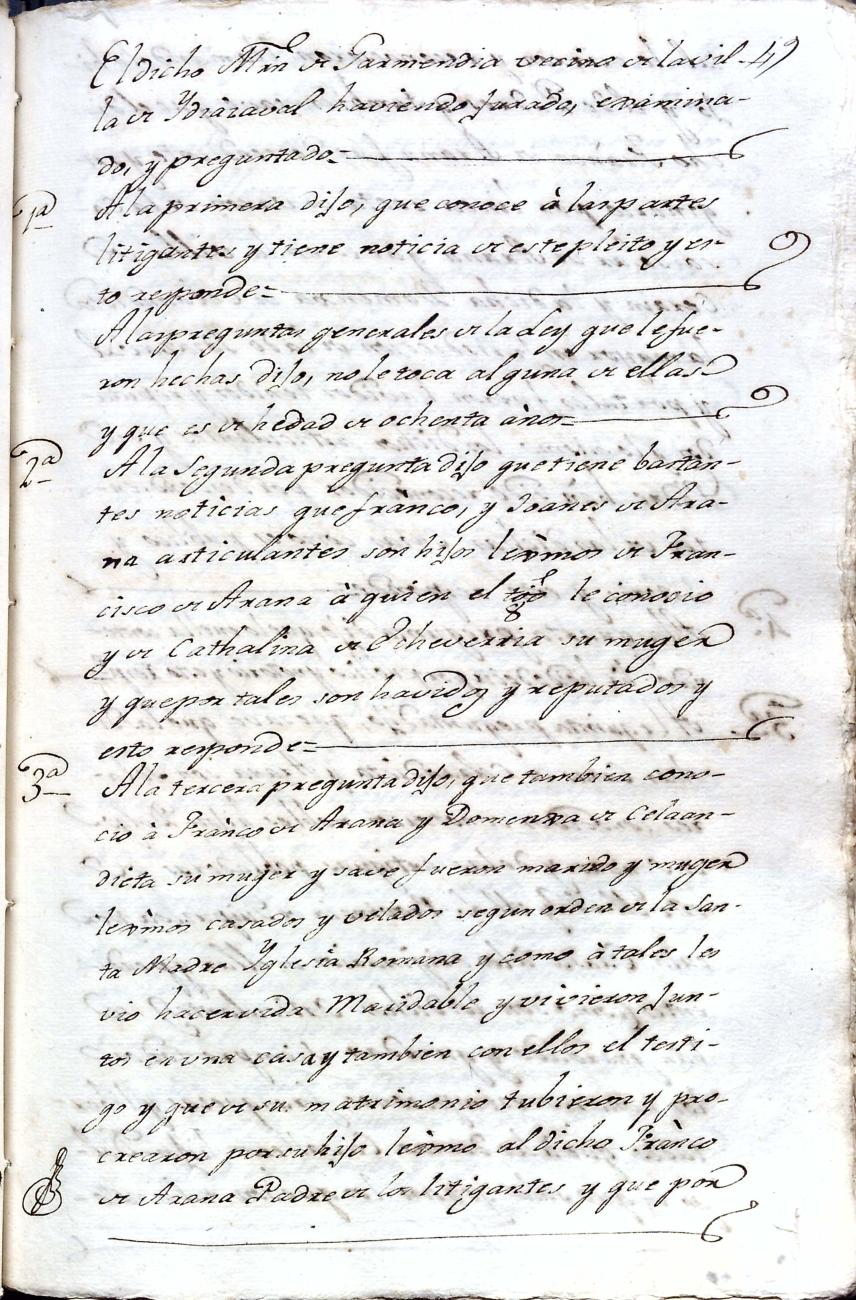 El dicho Mrn de Garmendia vecino de la vil- 49
la de Ydiazaval haviendo jurado, examina-
do, y preguntado=
1a A la primera dijo, que conoce à las partes
litigantes y tiene noticia de este pleito y es-
to responde=
A las preguntas generales de la Ley que le fue-
ron hechas dijo, no le toca alguna de ellas
y que es de hedad de ochenta años=
2a A la Segunda pregunta dijo que tiene bastan-
tes noticias que franco, y Joanes de Ara-
na articulantes son hijos lexmos de Fran-
cisco de Arana à quien el tgo le conocio
y de Cathalina de Echeverria su muger
y que por tales son havidos y reputados y
esto responde=
3a A la tercera pregunta dijo, que tambien cono-
cio à Franco de Arana y Domenxa de Celaan-
dieta su muger y save fueron marido y muger
lexmos casados y velados segun orden de la San-
ta Madre Yglesia Romana y como à tales les
vio hacer vida Maridable y vivieron jun-
tos en una casa y tambien con ellos el testi-
go y que de su matrimonio tubieron y pro-
crearon por su hijo lexmo al dicho Franco
de Arana Padre de los litigantes y que por